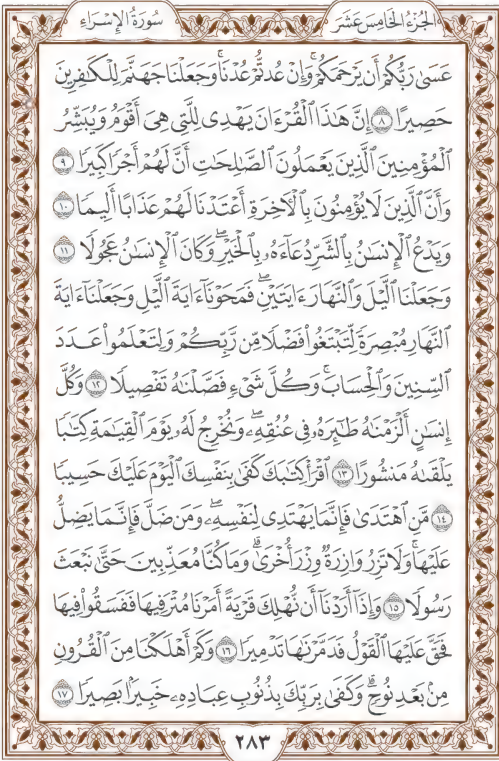 الجزء الخامس عشر
سورة الإسراء
عَسَىٰ رَبُّكُمْ أَن يَرْحَمَكُمْ ۚ وَإِنْ عُدتُّمْ عُدْنَا ۘ وَجَعَلْنَا جَهَنَّمَ لِلْكَـٰفِرِينَ
حَصِيرًا ٨ إِنَّ هَـٰذَا ٱلْقُرْءَانَ يَهْدِى لِلَّتِى هِىَ أَقْوَمُ وَيُبَشِّرُ
ٱلْمُؤْمِنِينَ ٱلَّذِينَ يَعْمَلُونَ ٱلصَّـٰلِحَـٰتِ أَنَّ لَهُمْ أَجْرًا كَبِيرًا ٩
وَأَنَّ ٱلَّذِينَ لَا يُؤْمِنُونَ بِٱلْـَٔاخِرَةِ أَعْتَدْنَا لَهُمْ عَذَابًا أَلِيمًا ١٠
وَيَدْعُ ٱلْإِنسَـٰنُ بِٱلشَّرِّ دُعَآءَهُۥ بِٱلْخَيْرِ ۖ وَكَانَ ٱلْإِنسَـٰنُ عَجُولًا ١١
وَجَعَلْنَا ٱلَّيْلَ وَٱلنَّهَارَ ءَايَتَيْنِ ۖ فَمَحَوْنَآ ءَايَةَ ٱلَّيْلِ وَجَعَلْنَآ ءَايَةَ
ٱلنَّهَارِ مُبْصِرَةً لِّتَبْتَغُوا۟ فَضْلًا مِّن رَّبِّكُمْ وَلِتَعْلَمُوا۟ عَدَدَ
ٱلسِّنِينَ وَٱلْحِسَابَ ۚ وَكُلَّ شَىْءٍ فَصَّلْنَـٰهُ تَفْصِيلًا ١٢ وَكُلَّ
إِنسَـٰنٍ أَلْزَمْنَـٰهُ طَـٰٓئِرَهُۥ فِى عُنُقِهِۦ ۖ وَنُخْرِجُ لَهُۥ يَوْمَ ٱلْقِيَـٰمَةِ كِتَـٰبًا
يَلْقَىٰهُ مَنشُورًا ١٣ ٱقْرَأْ كِتَـٰبَكَ كَفَىٰ بِنَفْسِكَ ٱلْيَوْمَ عَلَيْكَ حَسِيبًا
١٤ مَّنِ ٱهْتَدَىٰ فَإِنَّمَا يَهْتَدِى لِنَفْسِهِۦ ۖ وَمَن ضَلَّ فَإِنَّمَا يَضِلُّ
عَلَيْهَا ۚ وَلَا تَزِرُ وَازِرَةٌ وِزْرَ أُخْرَىٰ ۗ وَمَا كُنَّا مُعَذِّبِينَ حَتَّىٰ نَبْعَثَ
رَسُولًا ١٥ وَإِذَآ أَرَدْنَآ أَن نُّهْلِكَ قَرْيَةً أَمَرْنَا مُتْرَفِيهَا فَفَسَقُوا۟ فِيهَا
فَحَقَّ عَلَيْهَا ٱلْقَوْلُ فَدَمَّرْنَـٰهَا تَدْمِيرًا ١٦ وَكَمْ أَهْلَكْنَا مِنَ ٱلْقُرُونِ
مِنۢ بَعْدِ نُوحٍ ۗ وَكَفَىٰ بِرَبِّكَ بِذُنُوبِ عِبَادِهِۦ خَبِيرًۢا بَصِيرًا ١٧
٢٨٣